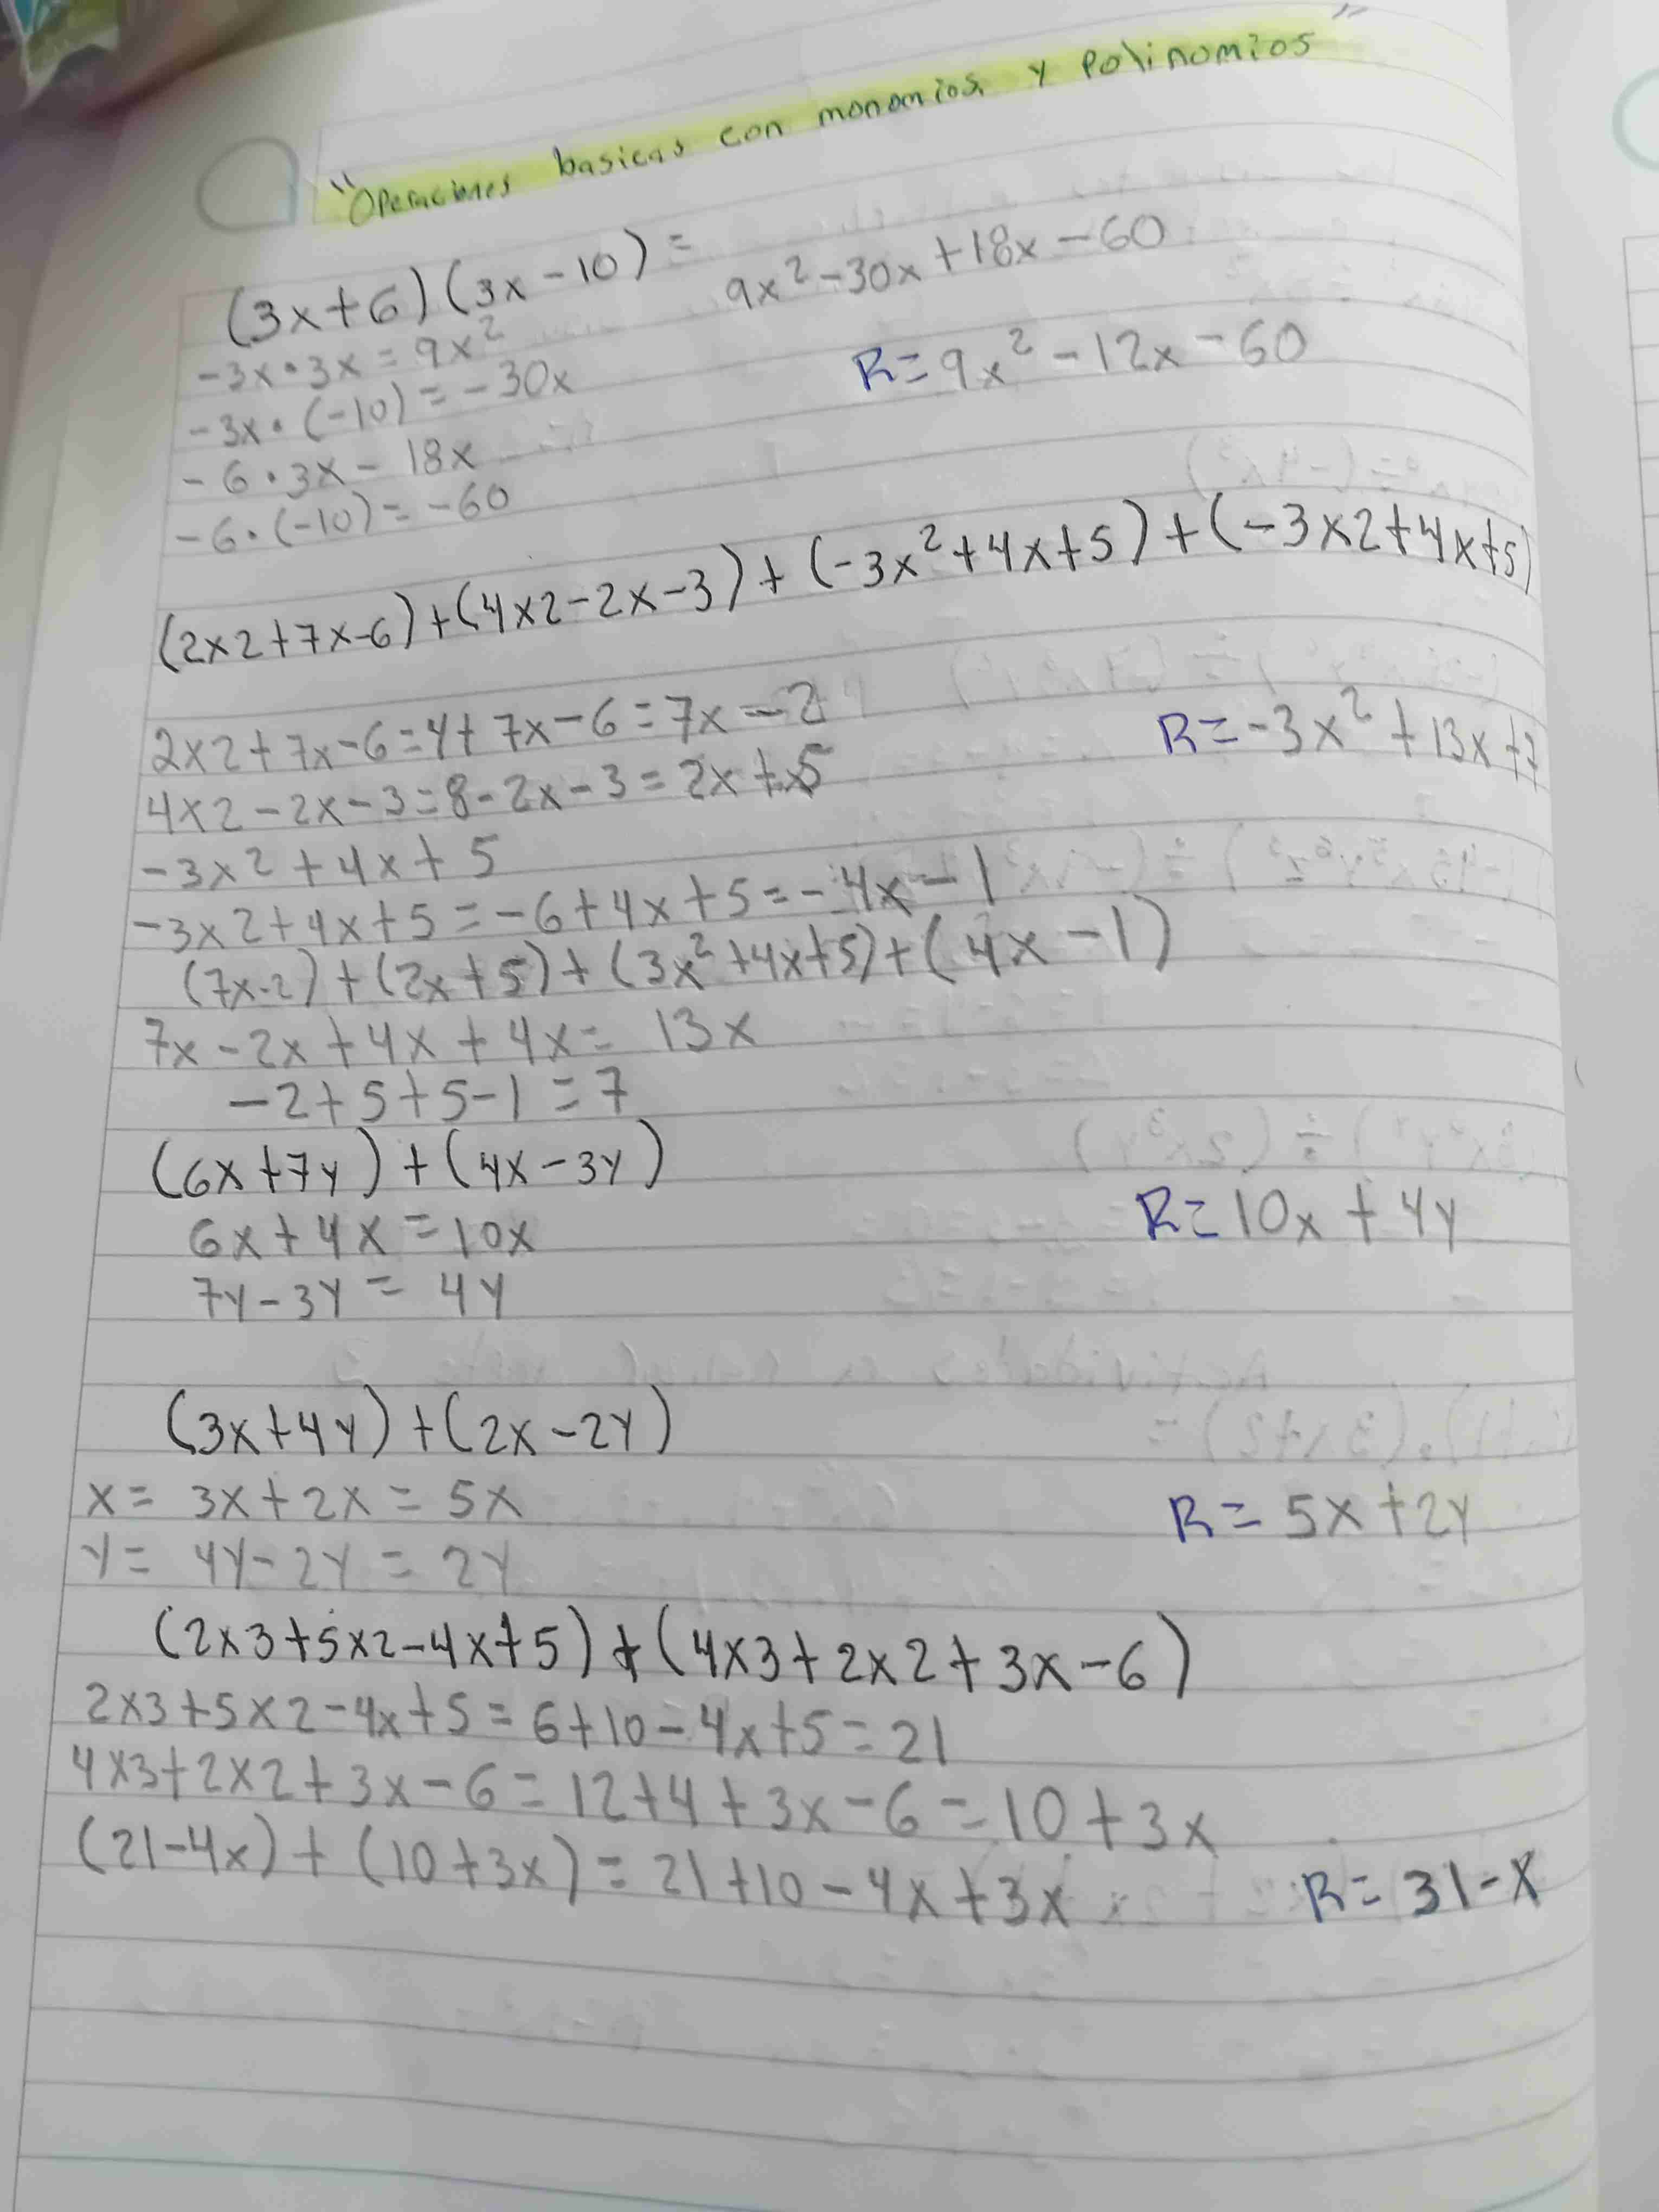 "Operaciones basicas con monomios y polinomios"
(3x+6)(3x-10) =
9x²-30x+18x-60
-3x·3x=9x²
R=9x²-12x-60
-3x·(-10)=-30x
-6·3x- 18x
-6·(-10)=-60
(2x2+7x-6)+(4x2-2x-3)+(-3x²+4x+5)+(-3x2+4x+5)
2x2+7x-6=4+7x-6=7x-2
R=-3x²+13x+7
4x2-2x-3=8-2x-3=2x+5
-3x2+4x+5
-3x2+4x+5=-6+4x+5=-4x-1
(7x-2)+(2x+5)+(3x²+4x+5)+(4x-1)
7x-2x+4x+4x= 13x
-2+5+5-1=7
(6x+7y)+(4x-3y)
R=10x+4y
6x+4x=10x
7y-3y= 4y
(3x+4y)+(2x-2y)
x= 3x+2x=5x
R= 5x+2y
y= 4y-2y= 2y
(2x3+5x2-4x+5)+(4x3+2x2+3x-6)
2x3+5x2-4x+5=6+10-4x+5=21
4x3+2x2+3x-6=12+4+3x-6=10+3x
(21-4x)+(10+3x)=21+10-4x+3x
R= 31-x